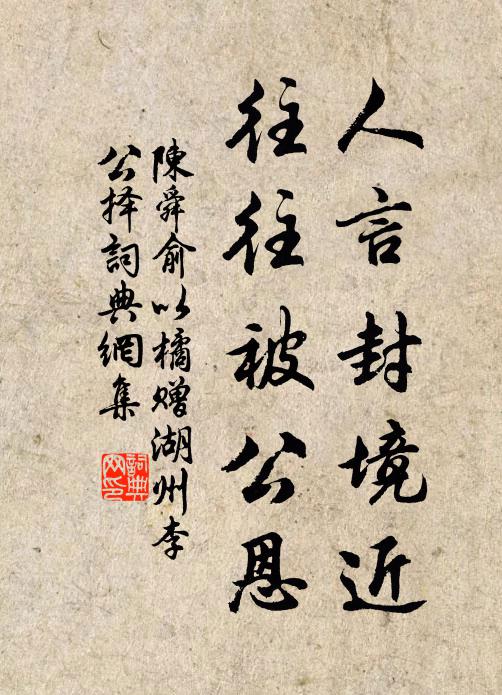 人言封境近
往往被公恩
陳舜俞以橘赠湖州李
公择詞典網集
詞典
网印